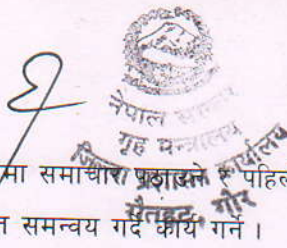 नेपाल सरकार
गृह मन्त्रालय
जिल्ला प्रशासन कार्यालय
रौतहट, गौर
मा समाचार पठाउने र पहिल
न समन्वय गर्दै कार्य गर्ने ।